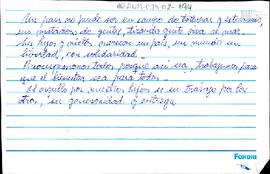 Un país no puede ser un campo de torturas y exterminio,
un matadero de gentes, tirando gente viva al mar.
Los hijos y nietos merecen un país, un mundo en
libertad, con solidaridad.
Preocupémonos todos porque así sea, trabajemos para
que el bienestar sea para todos.
El orgullo por nuestros hijos es su trabajo por los
otros, su generosidad y entrega.
FORONI